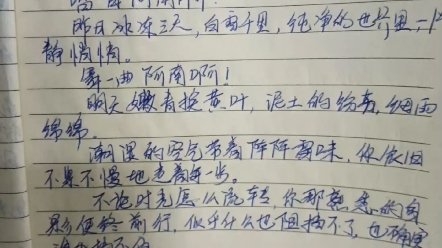 昨日冰冻三天,白雪千里,纯净的世界里一片
静悄悄。
舞一曲阿南啊!
明天嫩青掩黄叶,泥土的纷芳,细雨
绵绵。
潮湿的空气带着阵阵霉味,你依旧
不紧不慢地走着每一步。
不论时光怎么流转,你那熟悉的身
影使终前行,似乎什么也阻挡不了,也